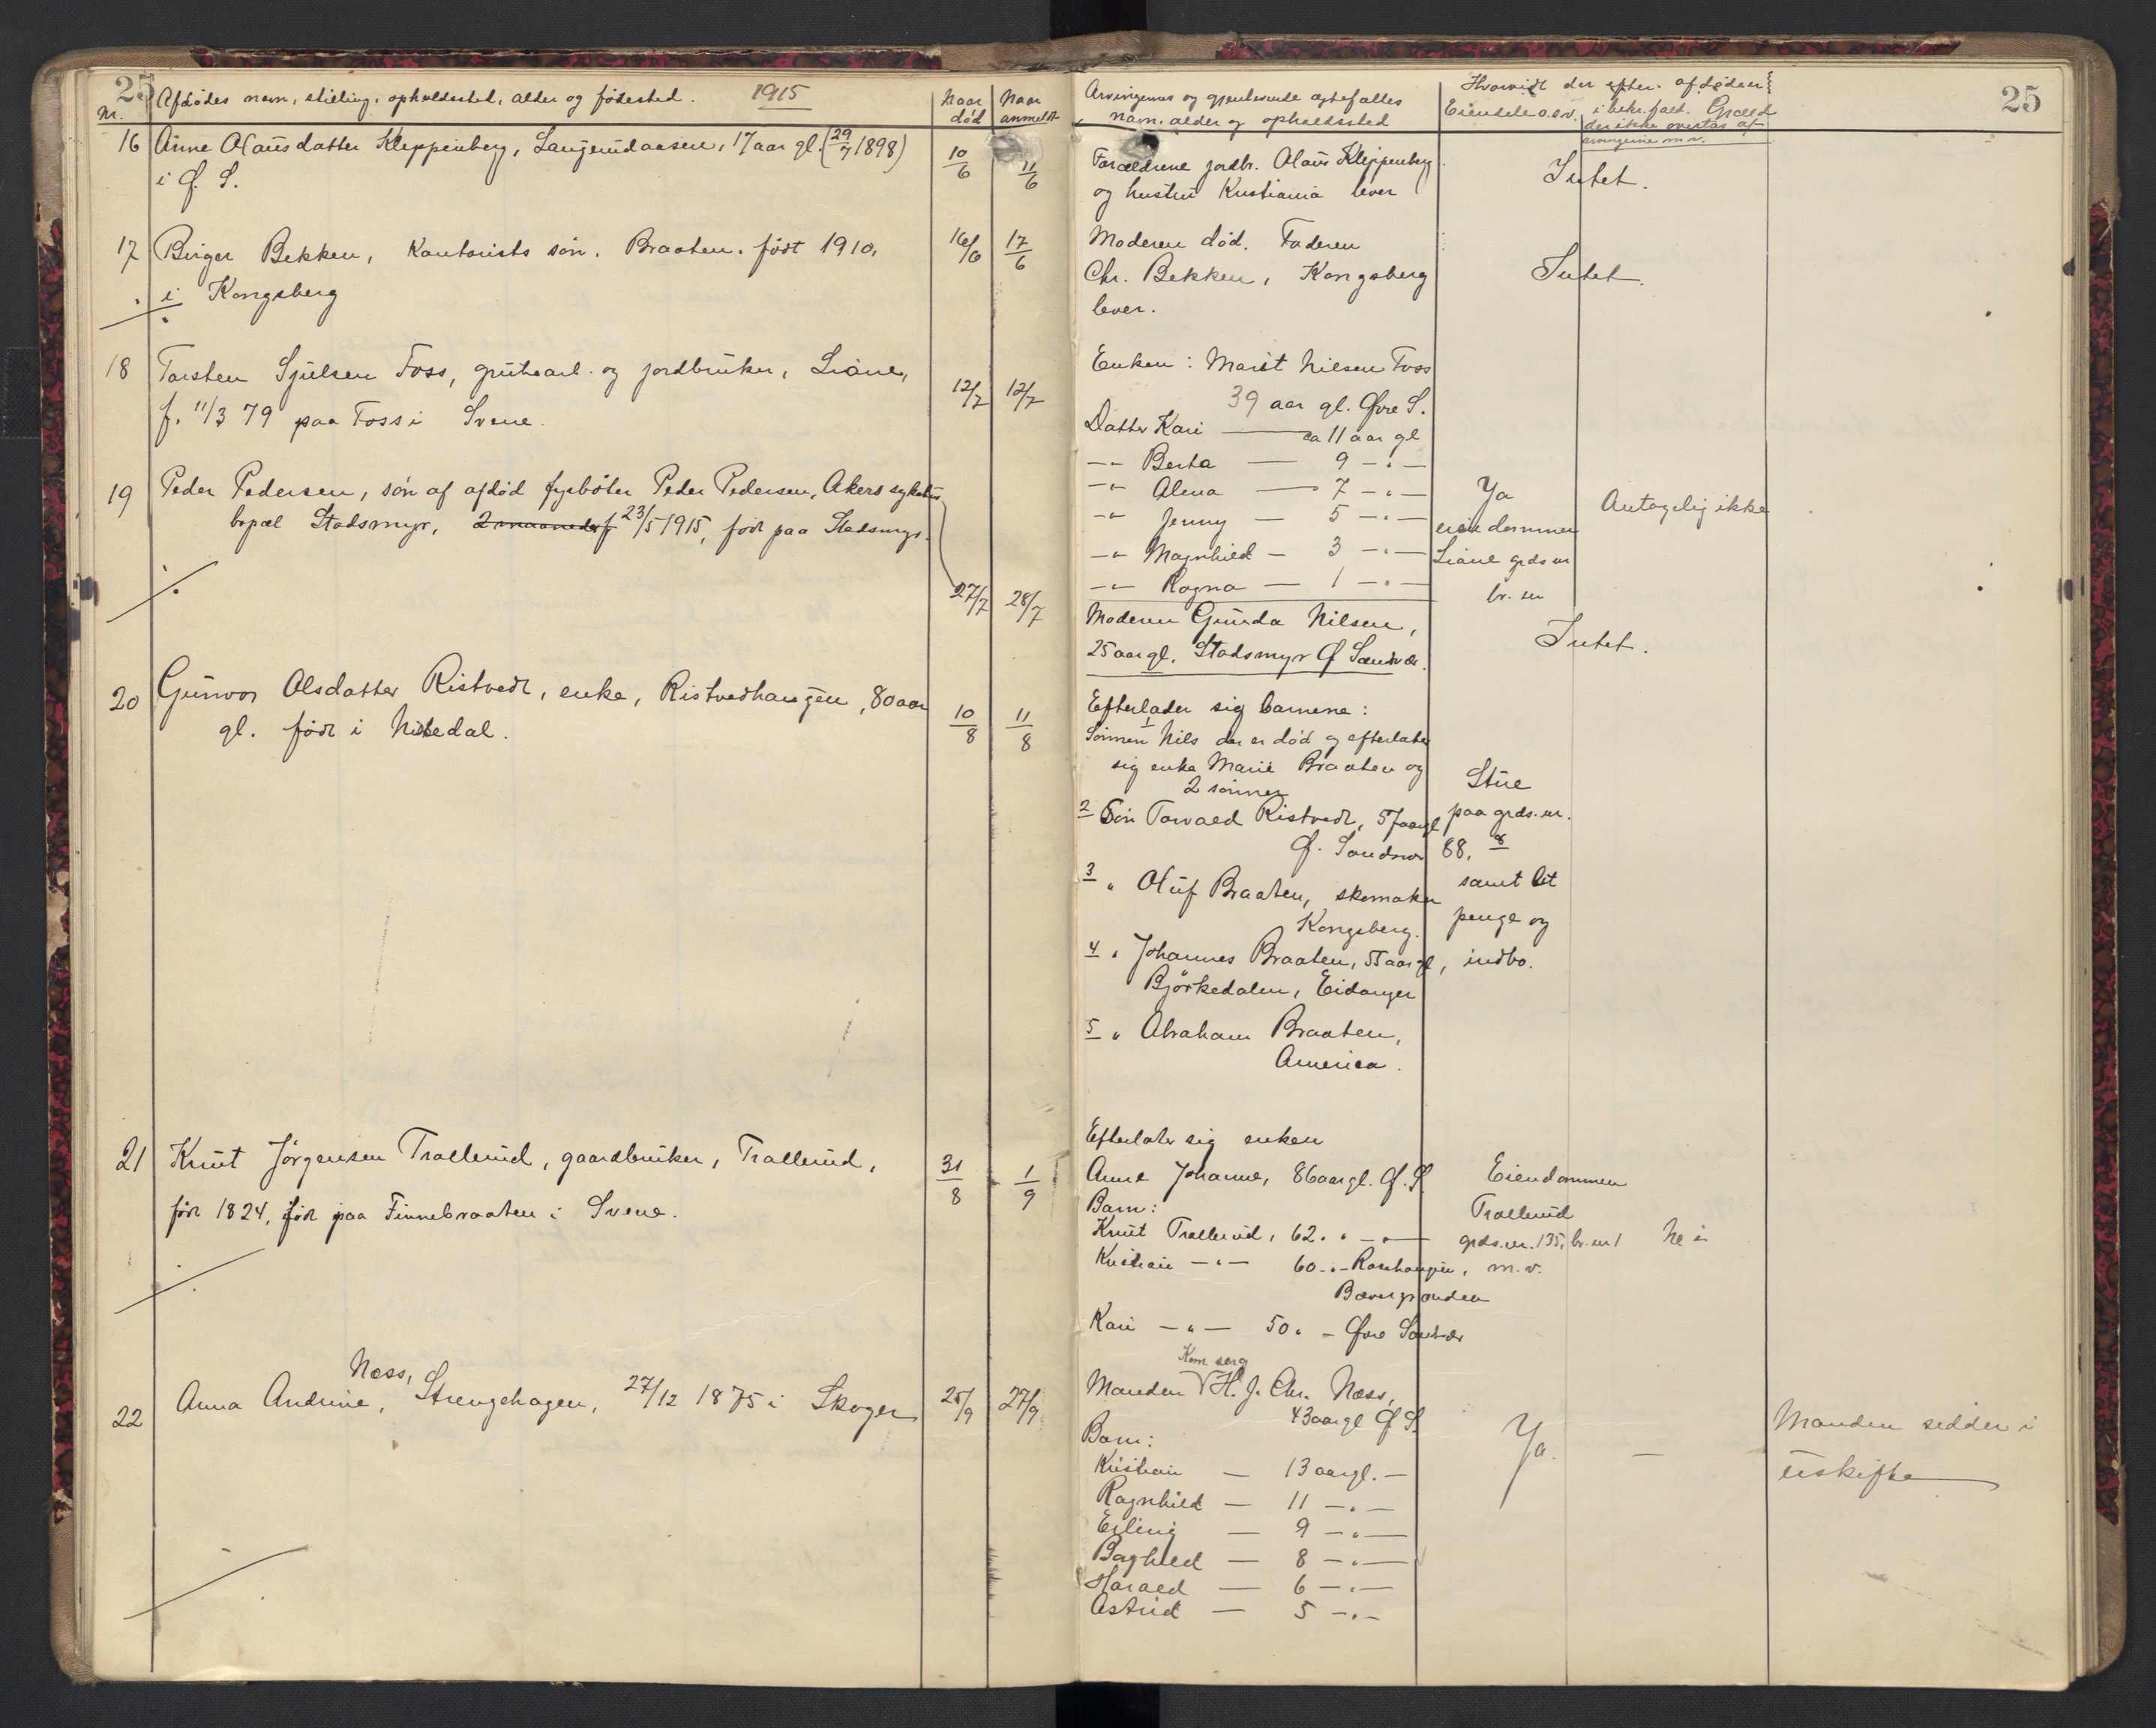 25
Nr.
Afdødes navn, stilling, opholdssted, alder og fødested. 1915
Naar død
Naar anmeldt
16 Anne Olausdatter Kleppenberg, Langerudaasen, 17 aar gl. (29/7 1898)
i Ø. S.
10/6 11/6
17 Birger Bekken, Kontorists søn. Braaten. født 1910,
i Kongsberg
16/6 17/6
18 Torsten Sjulsen Foss, grubearb. og jordbruker, Liane,
f. 11/3 79 paa Foss i Svene.
12/7 12/7
19 Peder Pedersen, søn af afdød fyrbøter Peder Pedersen, Akers sykehus,
bopæl Stadsmyr, 2 maaneder f 23/5 1915, født paa Stadsmyr.
27/7 28/7
20 Gunvor Olsdatter Ristvedt, enke, Ristvedhaugen, 80 aar
gl. født i Nissedal.
10/8 11/8
21 Knut Jørgensen Trollerud, gaardbruker, Trollerud,
født 1824, født paa Finnebraaten i Svene.
31/8 1/9
Næss,
22 Anna Andrine, Strengehagen, 27/12 1875 i Skoger
25/9 27/9
25
Arvingernes og gjenlevende ægtefælles
navn, alder og opholdssted
Hvorvidt der efter afdøde er
Eiendele o.s.v. i bekr. fald. Gjæld
der ikke overtas af
arvingerne m.v.
Forældrene jordbr. Olaus Kleppenberg
og hustru Kristiania lever
Intet.
Moderen død. Faderen
Chr. Bekken, Kongsberg
lever.
Intet.
Enken: Marit Nilsen Foss
39 aar gl. Øvre S.
Datter Kari — ca 11 aar gl
-"- Berta — 9 -"-
-"- Alma — 7 -"-
-"- Jenny — 5 -"-
-"- Magnhild — 3 -"-
-"- Ragna — 1 -"-
Ja
eiendommen
Liane grds nr
br. nr
Antagelig ikke
Moderen Gunda Nilsen,
25 aar gl. Stadsmyr Ø Sandsvær.
Intet.
Efterlader sig barnene:
1
Sønnen Nils der er død og efterlater
sig enke Marie Braaten og
2 sønner
2 Søn Torvald Ristvedt, 57 aar gl
Ø. Sandsvær
3 " Oluf Braaten, skomaker
Kongsberg.
4 " Johannes Braaten, 55 aar gl,
Bjørkedalen, Eidanger
5 " Abraham Braaten,
America.
Stue
paa grds. nr.
88, 8
samt lit
penge og
indbo.
Efterlater sig enken
Anne Johanne, 86 aar gl. Ø. S.
Barn:
Knut Trollerud, 62 " -"-
Kristian -"- 60 -"- Ronehaugen,
Bæverg
Kari -"- 50 " - Øvre Sandsvær
Eiendommen
Trollerud
grds. nr. 135, br. nr 1
m. v.
Nei
Kom serg
Manden H. J. Chr. Næss,
43 aar gl Ø S.
Barn:
Kristian — 13 aar gl. —
Ragnhild — 11 -"-
Erling — 9 -"-
Baghild — 8 -"-
Harald — 6 -"-
Astrid — 5 -"-
Ja. —
Manden sidder i
uskifte